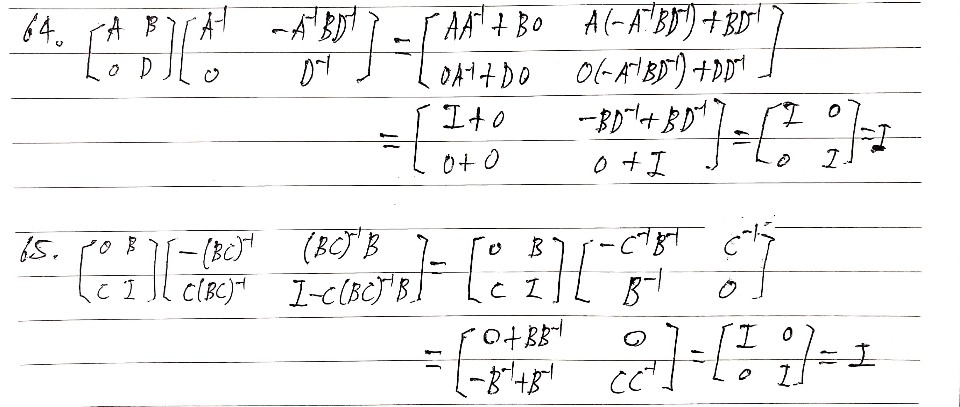 64. [A B; 0 D] [A⁻¹ -A⁻¹BD⁻¹; 0 D⁻¹] = [AA⁻¹+B0 A(-A⁻¹BD⁻¹)+BD⁻¹; 0A⁻¹+D0 0(-A⁻¹BD⁻¹)+DD⁻¹]
= [I+0 -BD⁻¹+BD⁻¹; 0+0 0+I] = [I 0; 0 I] = I
65. [0 B; C I] [-(BC)⁻¹ (BC)⁻¹B; C(BC)⁻¹ I-C(BC)⁻¹B] = [0 B; C I] [-C⁻¹B⁻¹ C⁻¹; B⁻¹ 0]
= [0+BB⁻¹ 0; -B⁻¹+B⁻¹ CC⁻¹] = [I 0; 0 I] = I